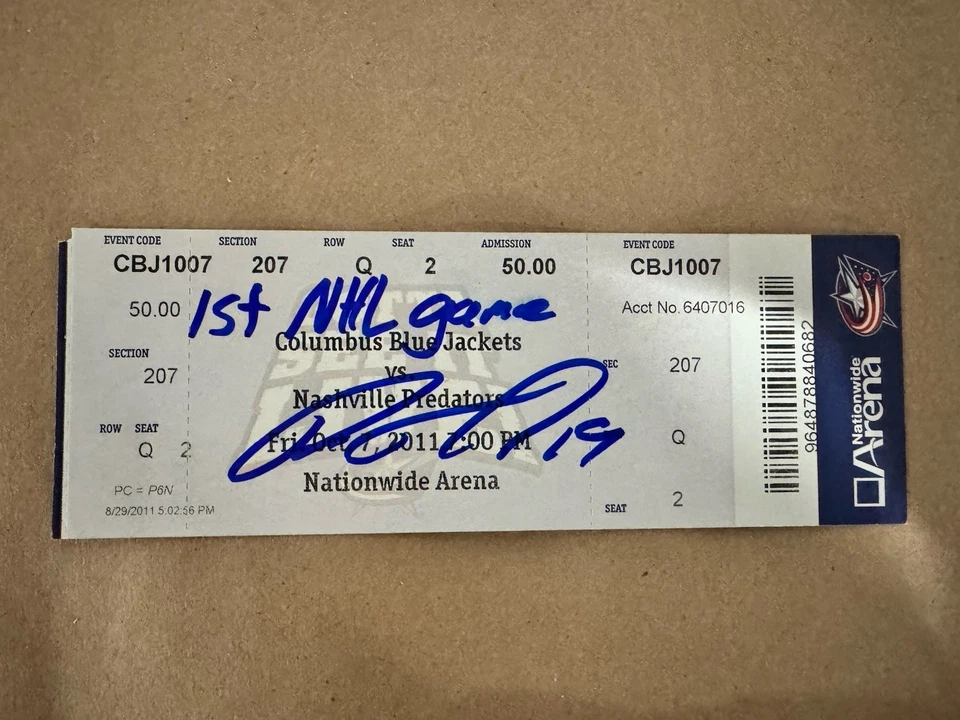 EVENT CODE SECTION ROW SEAT ADMISSION EVENT CODE
CBJ1007 207 Q 2 50.00 CBJ1007
50.00 1st NHL game Acct No. 6407016
Columbus Blue Jackets
SECTION vs SEC 207
207 Nashville Predators
ROW SEAT Fri, Oct 7, 2011 7:00 PM 19 Q
Q 2
Nationwide Arena
PC = P6N SEAT 2
8/29/2011 5:02:56 PM
964878840682
Nationwide
Arena